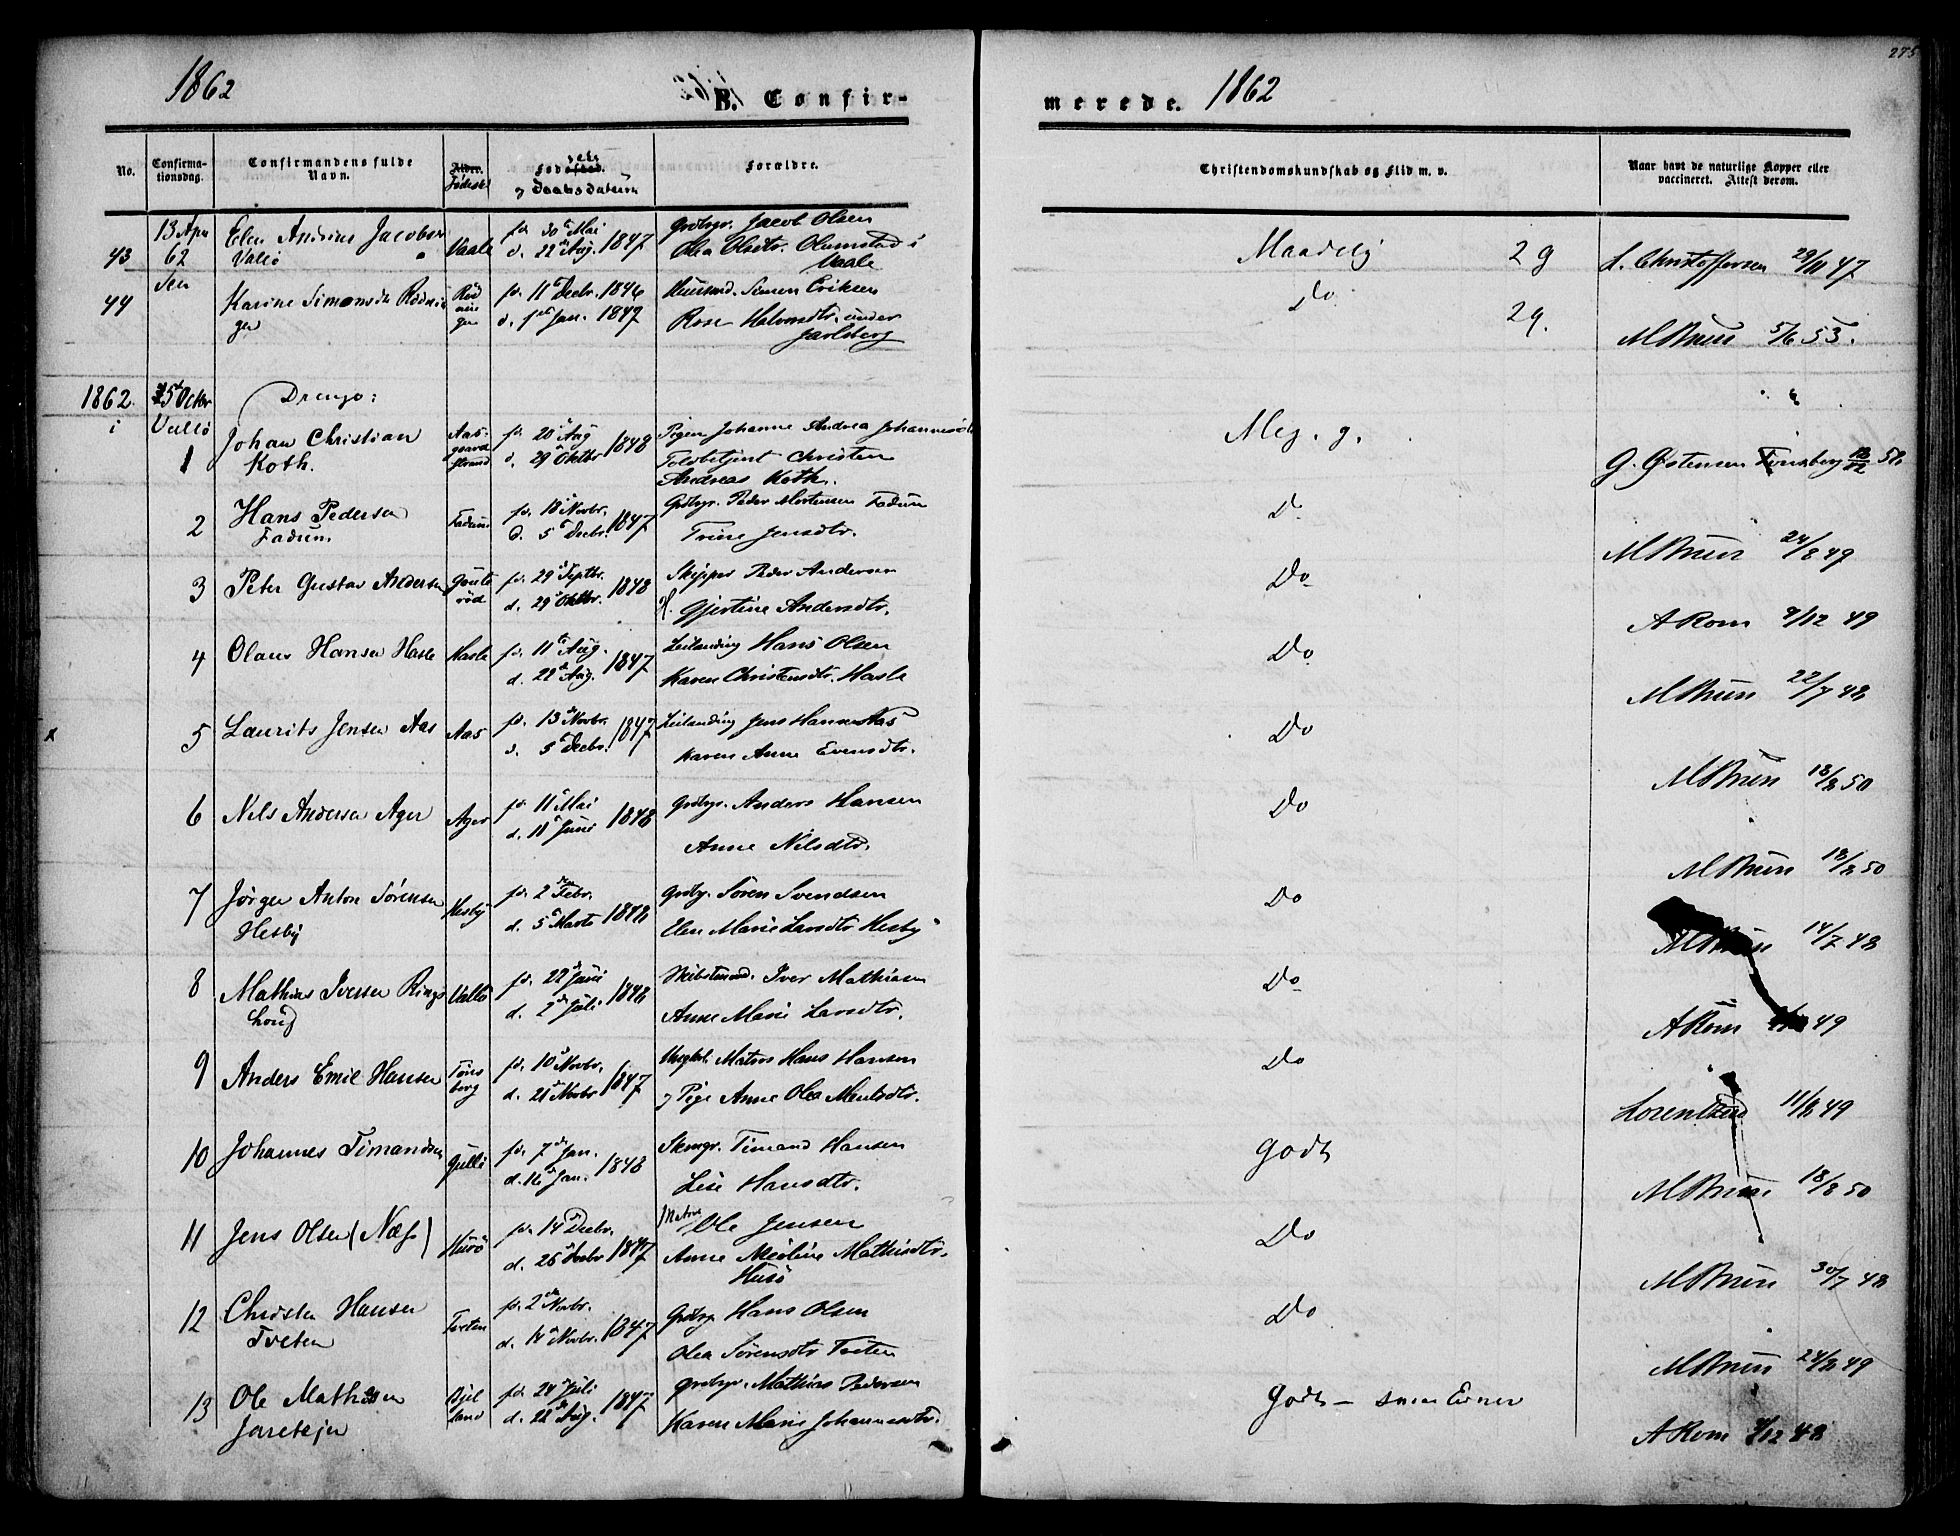 275
1862
B. Confir-
merede.
1862
No.
Confirma-
tionsdag.
Confirmandens fulde
Navn.
Alder.
Fødested
Fødested
og Daabsdatum
Forældre.
Christendomskundskab og Flid m. v.
Naar havt de naturlige Kopper eller
vaccineret. Attest derom.
43
13 Apr
62
Elen Andrine Jacobsen
Vallö
Vaale
fd. 30 Mai
d. 22 Aug. 1847
Grdbgr. Jacob Olsen
Olea Olsdtr. Olumstad i
Vaale
Maadelig 2 g
L. Christoffersen 29/11 47
44
Karine Simonsdtr
ger
fd. 11 Decbr. 1846
d. 1 Jan. 1847
Huusmd. Simen Eriksen
under
Jarlsberg
Do 2 g.
MBruun 5/6 53.
1862
i
5 Octbr
Vallö
Drenge:
1
Johan Christian
Koth.
Aas-
gaard
strand
fd. 20 Aug
d. 29 Oktbr 1848
Pigen Johanne Andrea Johannesdtr
Toldbetjent Christen
Andreas Koth.
Meg. g.
G. Østensen Tönsberg
2
Hans Pedersen
Fadum.
Fadum
fd. 18 Novbr.
d. 5 Decbr. 1847
Grdbgr. Peder Mortensen Fadum
Trine Jensdtr.
Do
MBruun 24/8 49
3
Peter Gustav Andersen
Goute
röd
fd. 29 Septbr.
d. 29 Oktbr. 1848
Skipper Peder Andersen
H. Gjertine Andersdtr.
Do
A Rom 9/12 49
4
Olaus Hansen Hasle
Hasle
fd. 11 Aug.
d. 22 Aug. 1847
Leilænding Hans Olsen
Karen Christensdtr. Hasle
Do
MBruun 22/7 48
5
Laurits Jensen Aas
Aas
fd. 13 Novbr.
d. 5 Decbr. 1847
Leilænding Jens Hansen Aas
Karen Anne Evensdtr.
Do
MBruun 18/8 50
6
Nils Andersen Ager
Ager
fd. 11 Mai
d. 11 Juni 1848
Grdbgr. Anders Hansen
Anne Nilsdtr.
Do
MBruun 18/8 50
7
Jörgen Anton Sörensen
Hesby
Hesby
fd. 2 Febr.
d. 5 Marts 1848
Grdbgr. Sören Svendsen
Elen Marie Larsdtr Hesby
Do
MBruun 14/7 48
8
Mathias Iversen Rings
houg
Vallö
fd. 22 Juni
d. 2 Juli 1848
Skibstmmd. Iver Mathiasen
Anne Marie Larsdtr.
Do
A Rom 49
9
Anders Emil Hansen
Töns
berg
fd. 10 Novbr.
d. 21 Novbr 1847
Ungkarl Matros Hans Hansen
og Pige Anne Olea Mentsdtr.
Do
Lorentzen 11/8 49
10
Johannes Timandsen
Gullö
fd. 7 Jan.
d. 16 Jan. 1848
Skmgr. Timand Hansen
Lise Hansdtr.
Godt
MBruun 18/8 50
11
Jens Olsen (Næss)
Husö
fd. 14 Decbr.
d. 26 Decbr 1847
Matros Ole Jensen
Anne Nicoline Mathisdtr.
Husö
Do
MBruun 30/7 48
12
Christen Hansen
Tveten
Tveten
fd. 2 Novbr.
d. 14 Novbr. 1847
Grdbgr Hans Olsen
Olea Sörensdtr Tveten
Do
MBruun 24/8 49
13
Ole Mathisen
Jareteien
Bjel
land
fd. 24 Juli
d. 22 Aug. 1847
Grdbgr. Mathias Pedersen
Karen Marie Johannesdtr.
Godt – sam Evner
A Rom 9/12 48